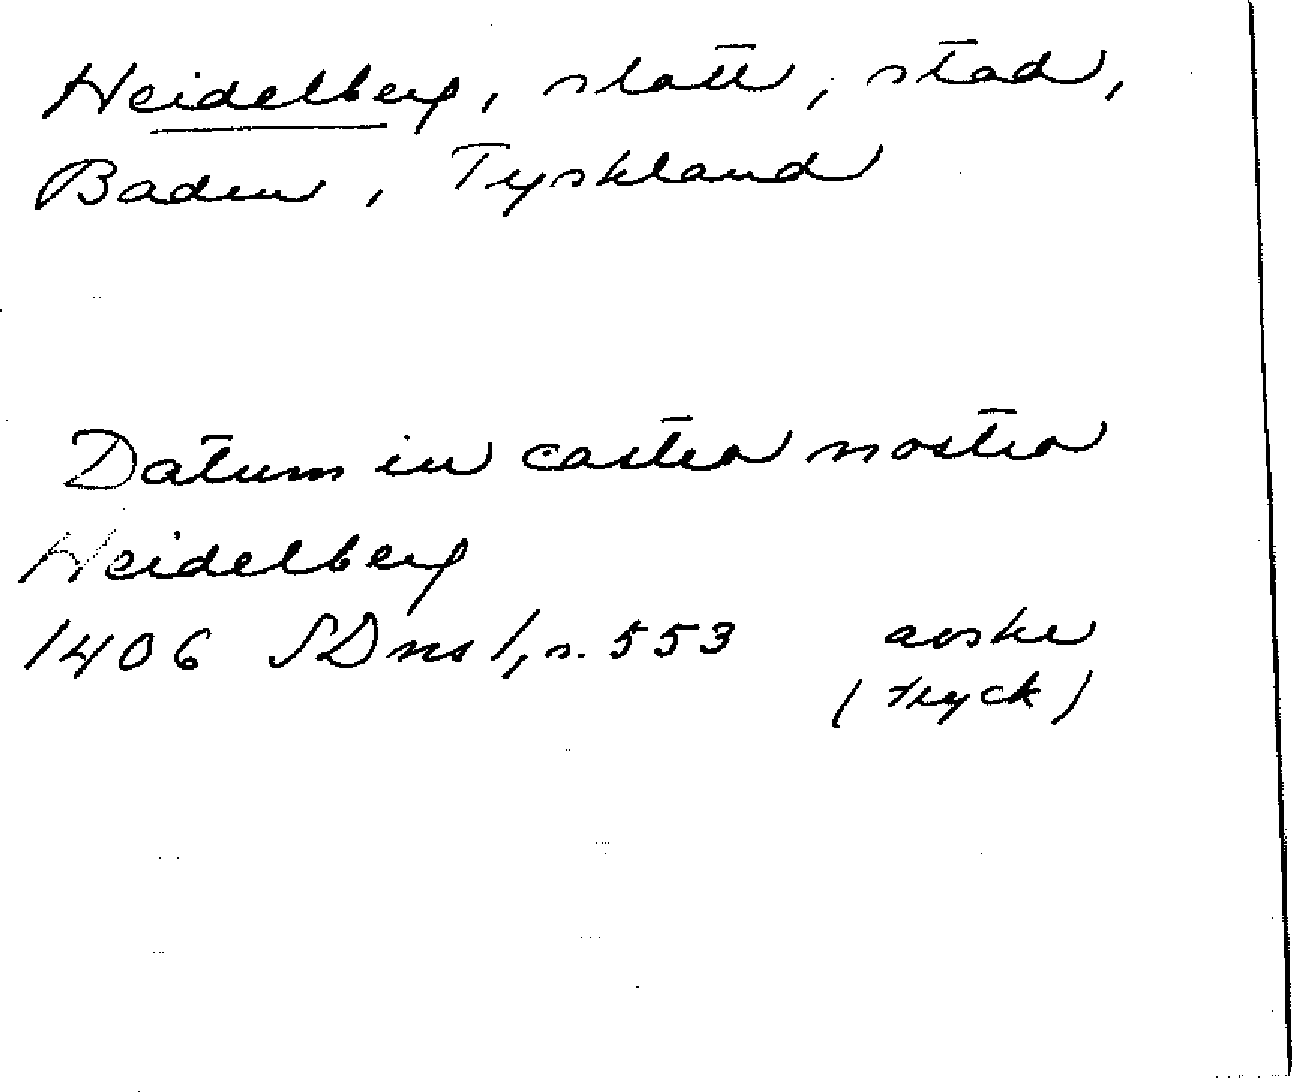 Heidelberg, slott, stad,
Baden, Tyskland
Datum in castro nostro
Heidelberg
1406 SDns 1, s. 553 avskr
(tryck)